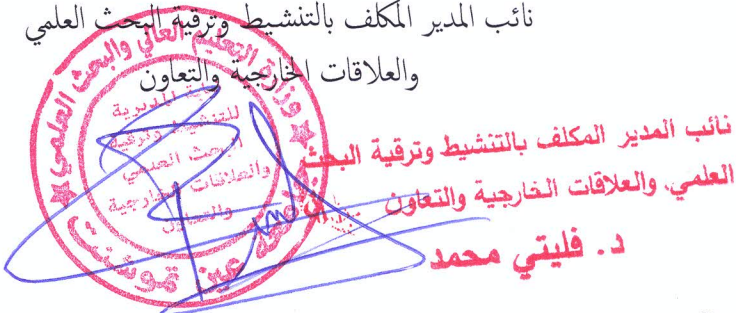 نائب المدير المكلف بالتنشيط وترقية البحث العلمي
والعلاقات الخارجية والتعاون
وزارة التعليم العالي والبحث العلمي
عين تموشنت
نيابة المديرية
للتنشيط وترقية
البحث العلمي
والعلاقات الخارجية
والتعاون
نائب المدير المكلف بالتنشيط وترقية البحث
العلمي، والعلاقات الخارجية والتعاون
د. فليتي محمد